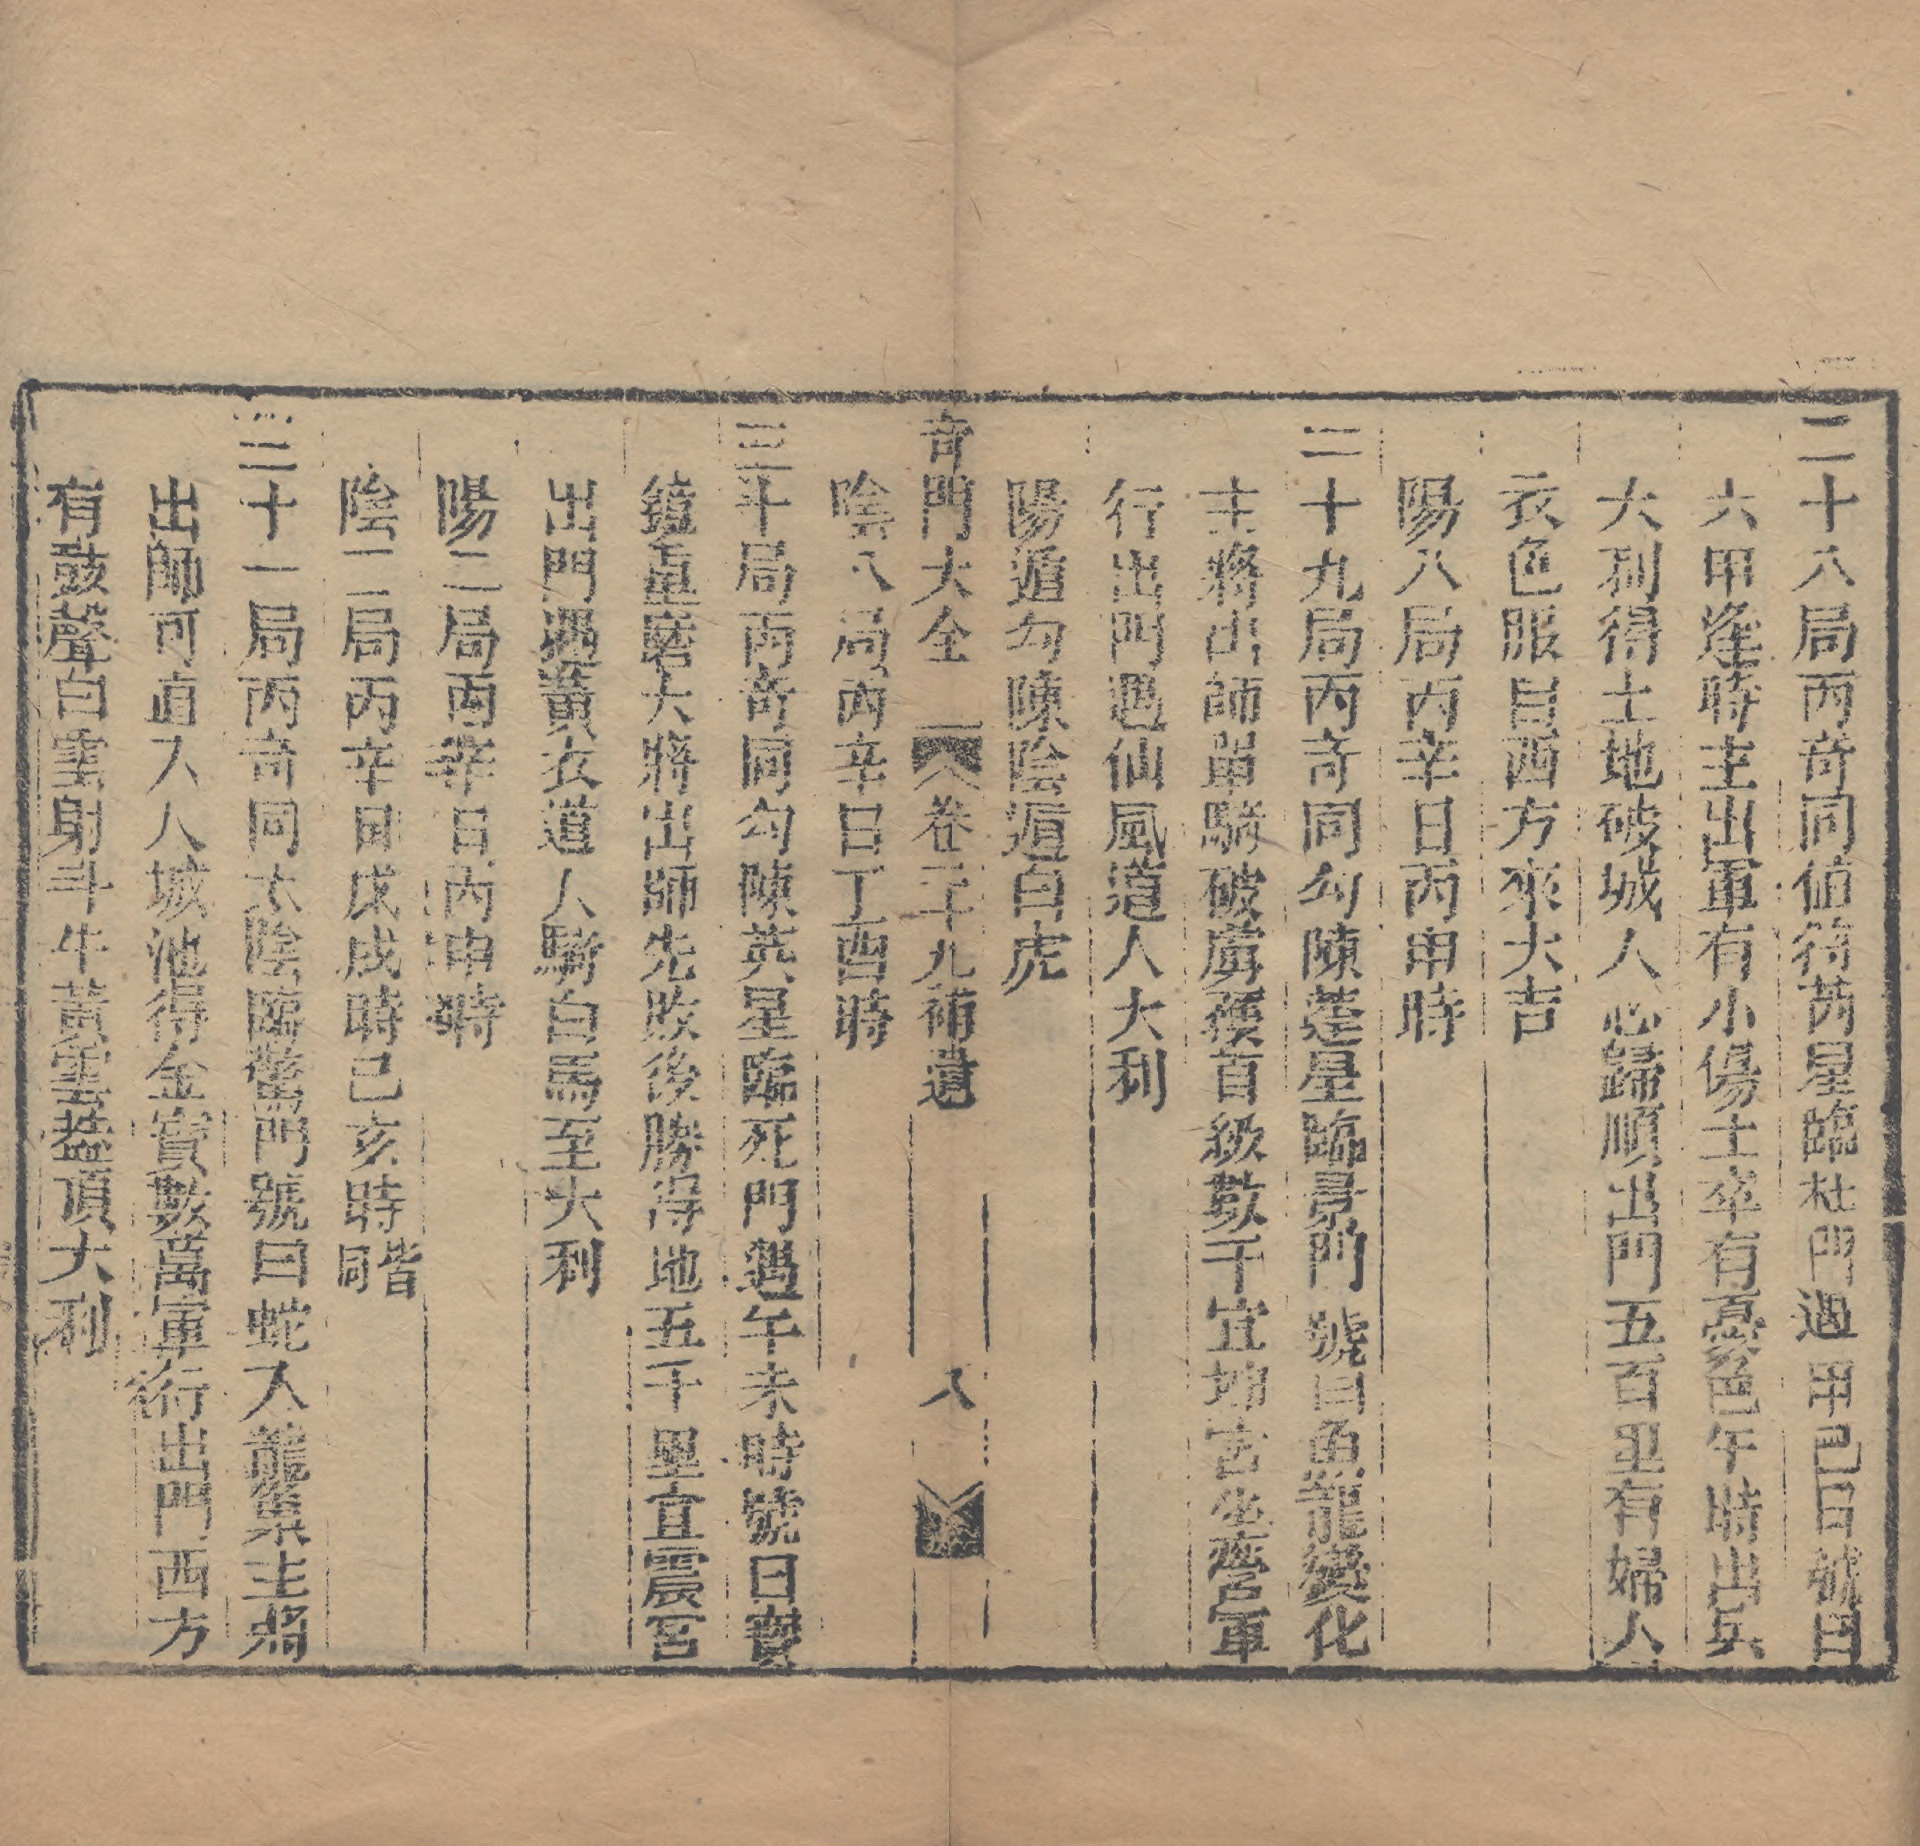 二十八局丙奇同值符芮星臨杜門遇甲己日號曰
六甲逢時主出軍有小傷士卒有憂色午時出兵
大利得土地破城人心歸順出門五百里有婦人
衣色服自西方來大吉
陽八局丙辛日丙申時
二十九局丙奇同勾陳蓬星臨景門號曰魚龍變化
主將出師單騎破虜獲首級數千宜坤宮坐營軍
行出門遇仙風道人大利
陽遁勾陳陰遁白虎
奇門大全 卷二十九補遺 八
陰八局丙辛日丁酉時
三十局丙奇同勾陳英星臨死門遇午未時號曰寶
鏡重磨大將出師先敗後勝得地五千里宜震宮
出門遇黃衣道人騎白馬至大利
陽二局丙辛日丙申時
陰二局丙辛日戊戌時己亥時皆同
三十一局丙奇同太陰臨驚門號曰蛇入龍巢主將
出師可直入人城池得金寶數萬軍行出門西方
有鼓聲白雲射斗牛黃雲蓋頂大利